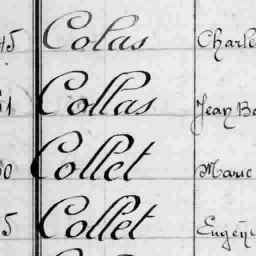 45 Colas Charle
51 Collas Jean Ba
50 Collet Marie
5 Collet Eugén